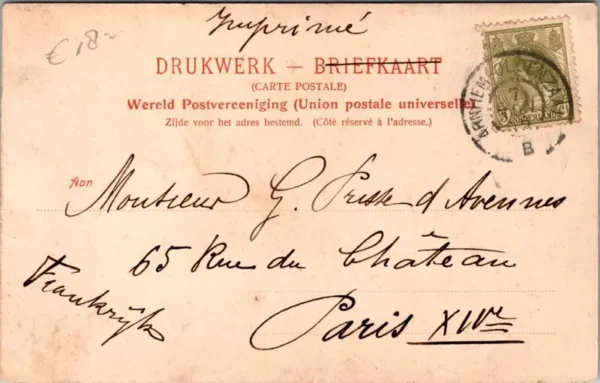 Imprimé
€ 18-
DRUKWERK — BRIEFKAART
(CARTE POSTALE)
Wereld Postvereeniging (Union postale universelle)
Zijde voor het adres bestemd. (Côté réservé à l'adresse.)
Aan
Monsieur G. Prisse d'Avennes
65 Rue du Château
Frankrijk
Paris XIVe
ARNHEM-OLDENZAAL
B
NEDERLAND